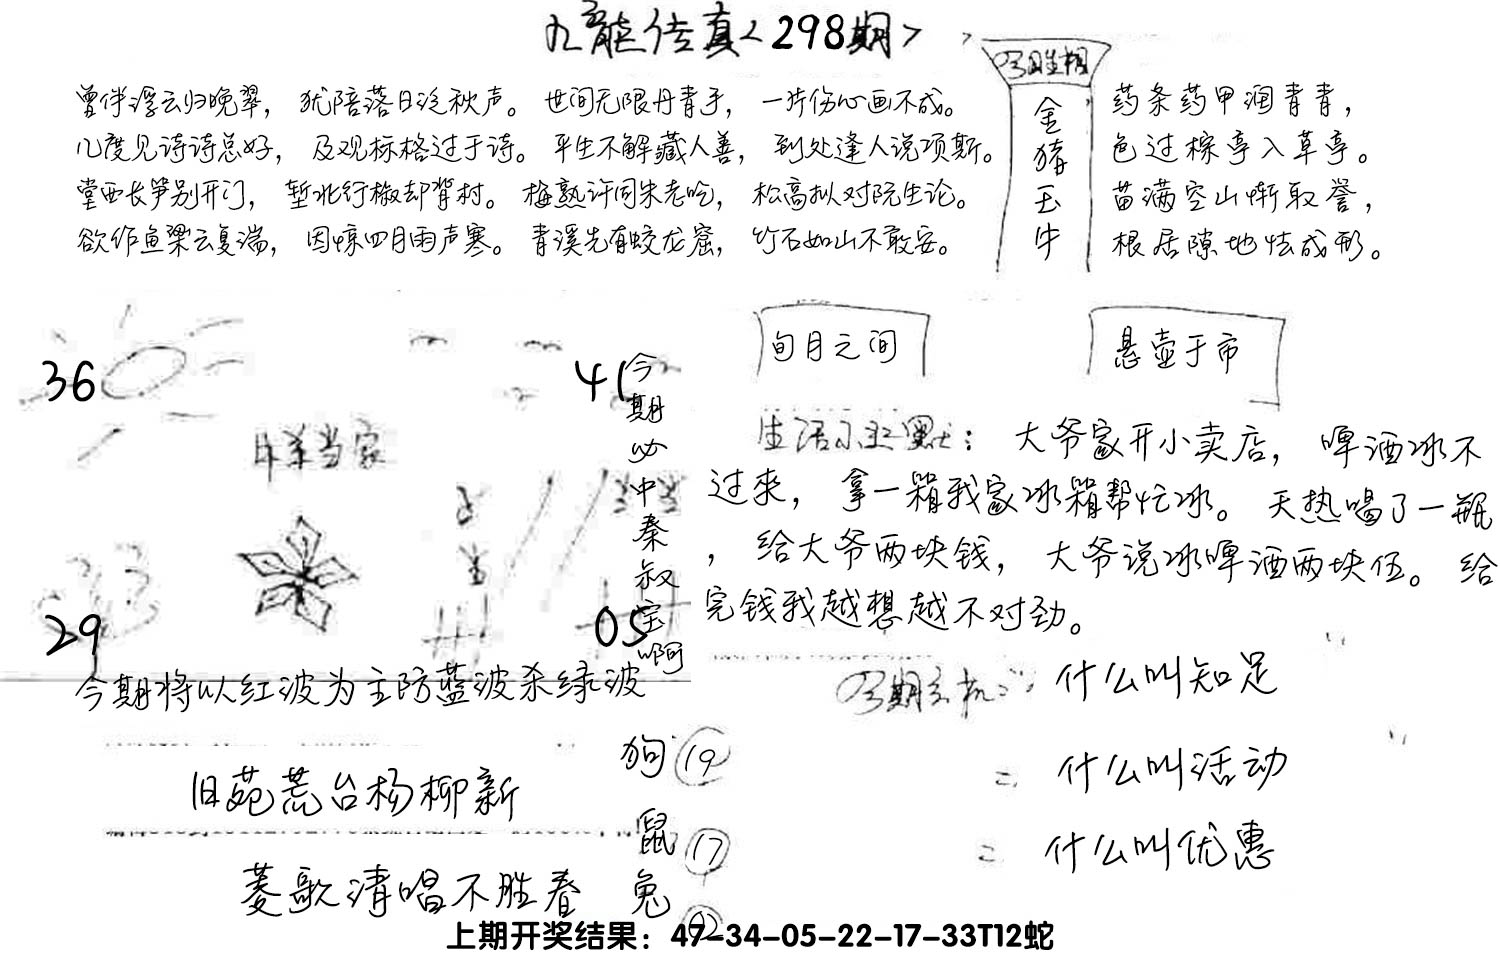 九龙传真<298期>
曾伴浮云归晚翠，犹陪落日泛秋声。世间无限丹青手，一片伤心画不成。
几度见诗诗总好，及观标格过于诗。平生不解藏人善，到处逢人说项斯。
堂西长笋别开门，堑北行椒却背村。梅熟许同朱老吃，松高拟对阮生论。
欲作鱼梁云复湍，因惊四月雨声寒。青溪先有蛟龙窟，竹石如山不敢安。
今期生相
金猪玉牛
药条药甲润青青，
色过棕亭入草亭。
苗满空山惭取誉，
根居隙地怯成形。
36
41
29
05
当家
今期必中秦叔宝啊
今期将以红波为主防蓝波杀绿波
旬月之间
悬壶于市
生活小幽默：大爷家开小卖店，啤酒冰不
过来，拿一箱我家冰箱帮忙冰。天热喝了一瓶
，给大爷两块钱，大爷说冰啤酒两块伍。给
完钱我越想越不对劲。
今期玄机 什么叫知足
= 什么叫活动
= 什么叫优惠
旧苑荒台杨柳新
菱歌清唱不胜春
狗 19
鼠 17
兔 02
上期开奖结果：47-34-05-22-17-33T12蛇